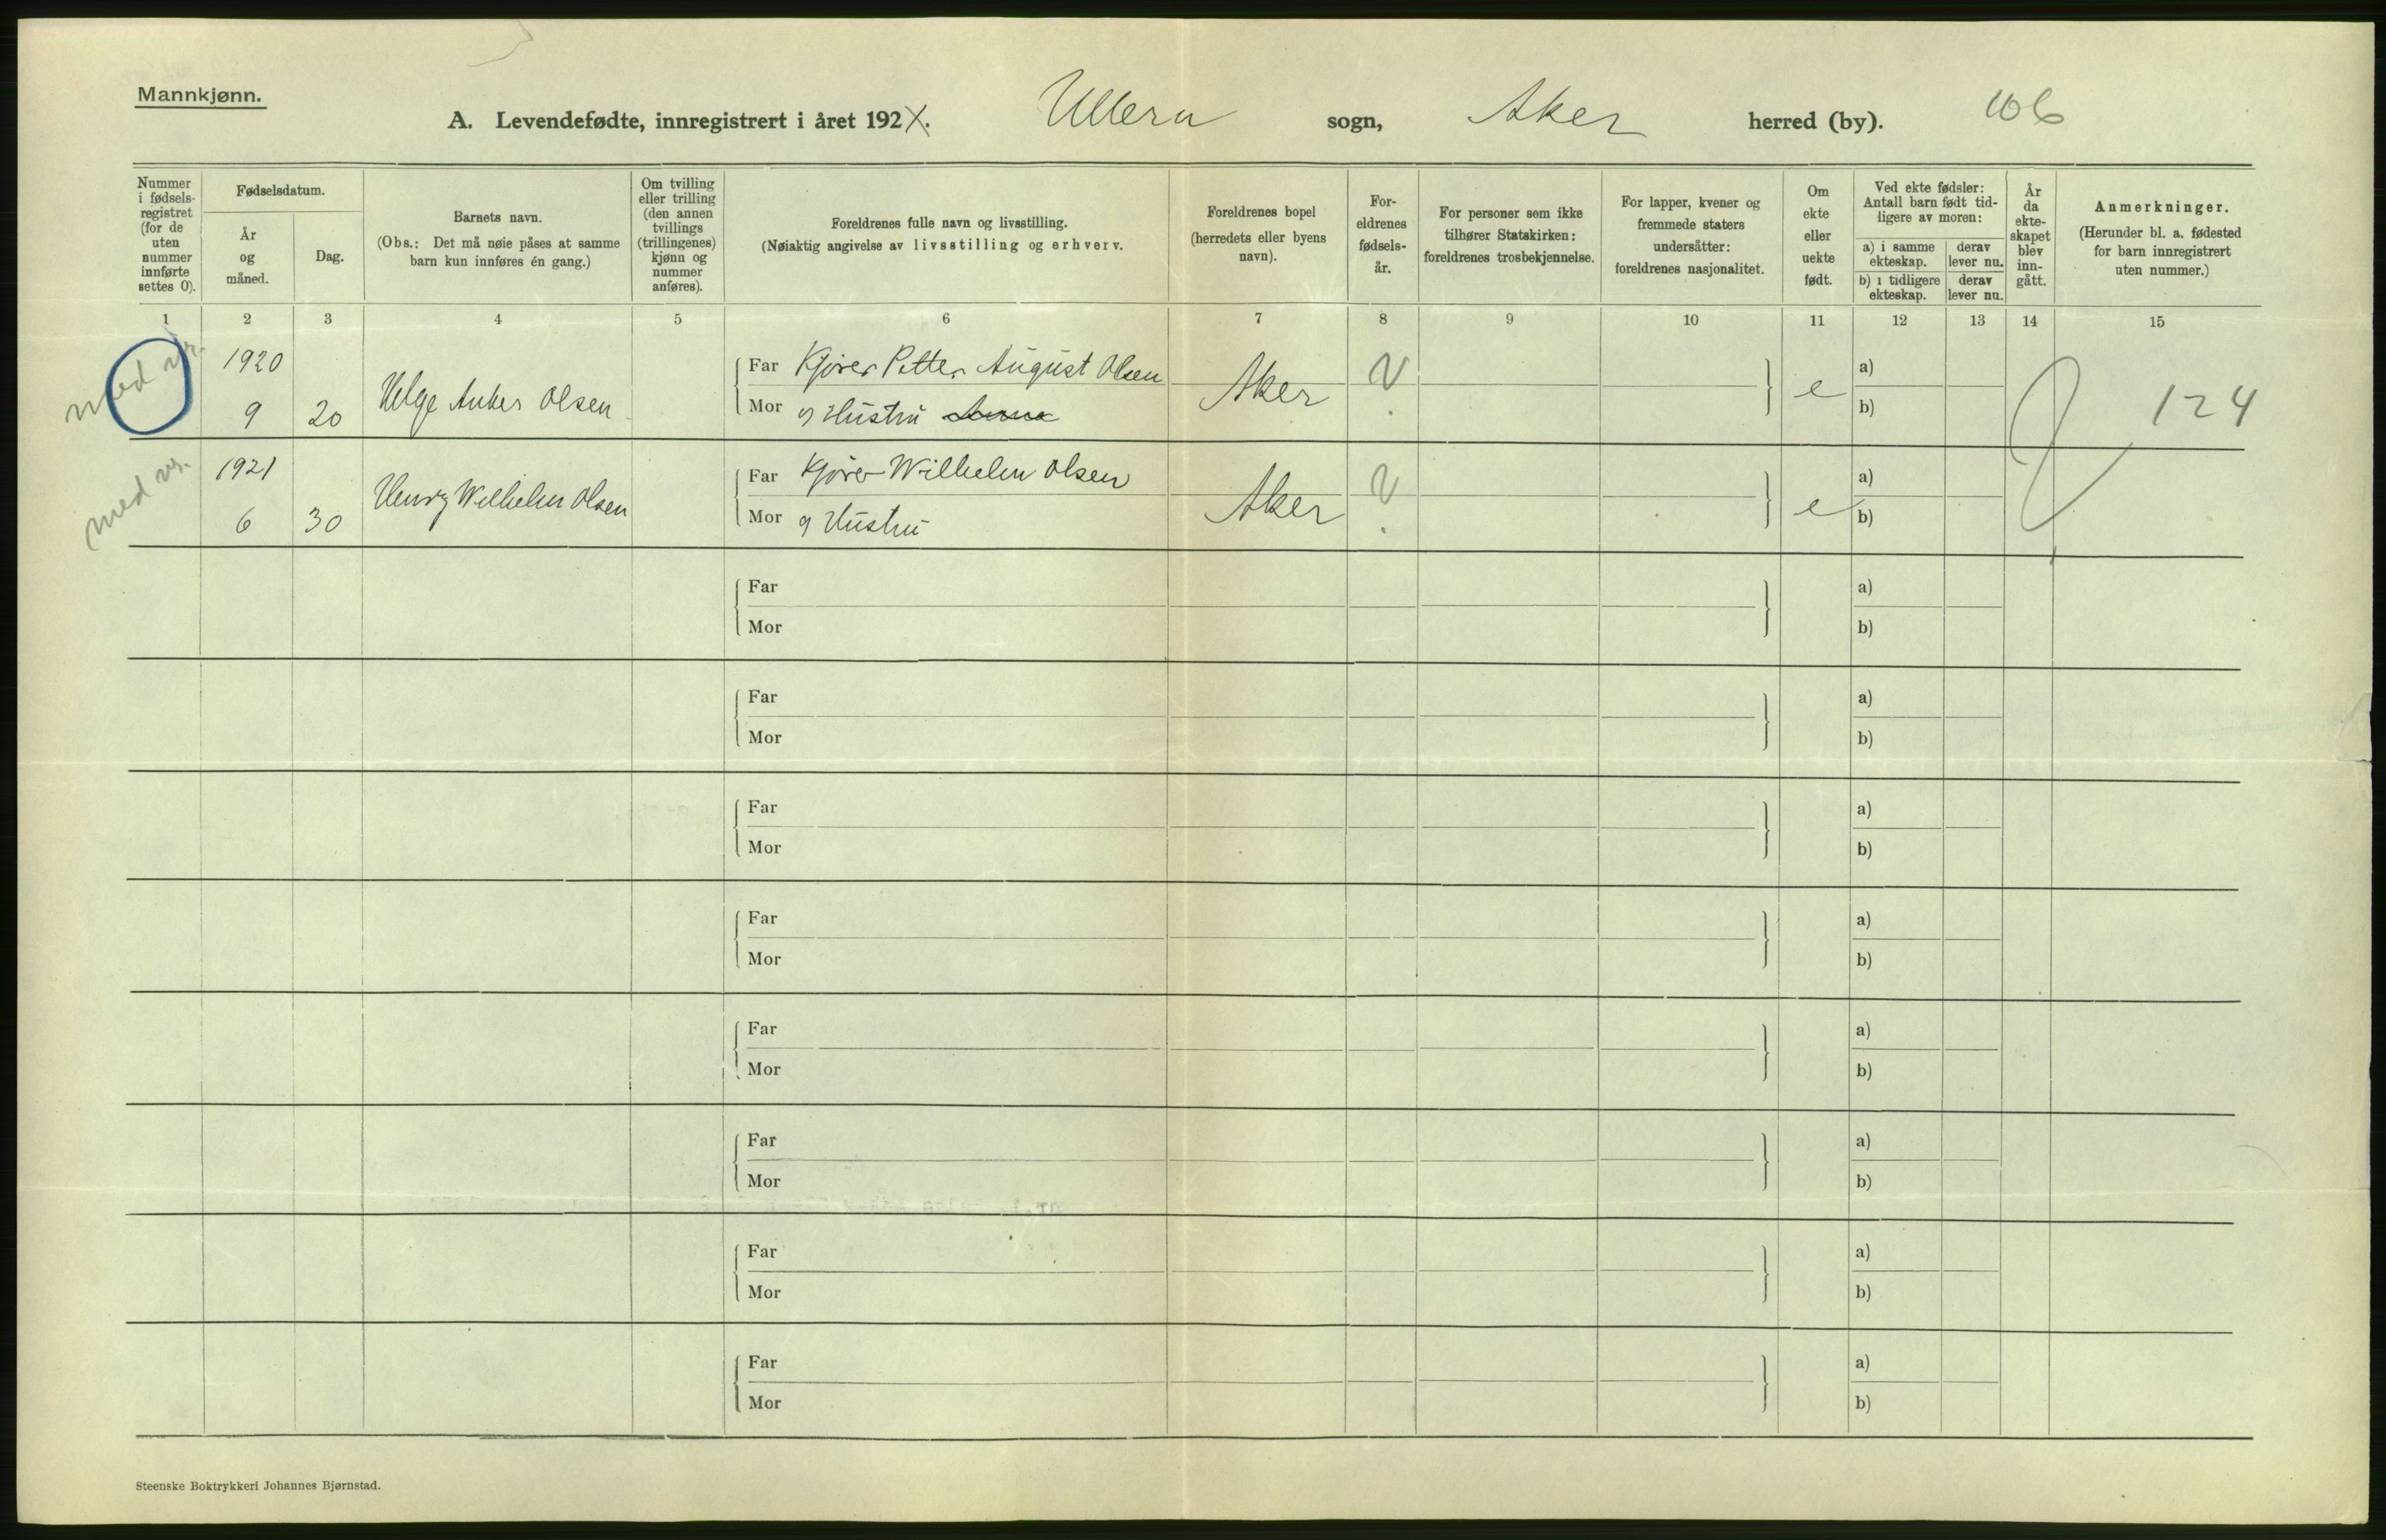 Mannkjønn.
A. Levendefødte, innregistrert i året 192X. Ullern sogn, Aker herred (by). 106
Nummer i fødsels-registret (for de uten nummer innførte settes 0).
Fødselsdatum.
År og måned.
Dag.
Barnets navn.
(Obs.: Det må nøie påses at samme barn kun innføres én gang.)
Om tvilling eller trilling (den annen tvillings (trillingenes) kjønn og nummer anføres).
Foreldrenes fulle navn og livsstilling.
(Nøiaktig angivelse av livsstilling og erhverv.
Foreldrenes bopel (herredets eller byens navn).
For-eldrenes fødsels-år.
For personer som ikke tilhører Statskirken: foreldrenes trosbekjennelse.
For lapper, kvener og fremmede staters undersåtter: foreldrenes nasjonalitet.
Om ekte eller uekte født.
Ved ekte fødsler: Antall barn født tid-ligere av moren:
a) i samme ekteskap.
derav lever nu.
b) i tidligere ekteskap.
derav lever nu.
År da ekte-skapet blev inn-gått.
Anmerkninger.
(Herunder bl. a. fødested for barn innregistrert uten nummer.)
1 2 3 4 5 6 7 8 9 10 11 12 13 14 15
med nr.
1920
9 20
Helge Anker Olsen
Far Kjører Petter August Olsen
Mor og Hustru Anna
Aker
e
a)
b)
124
med nr.
1921
6 30
Henry Wilhelm Olsen
Far Kjører Wilhelm Olsen
Mor og Hustru
Aker
e
a)
b)
Far a)
Mor b)
Far a)
Mor b)
Far a)
Mor b)
Far a)
Mor b)
Far a)
Mor b)
Far a)
Mor b)
Far a)
Mor b)
Far a)
Mor b)
Steenske Boktrykkeri Johannes Bjørnstad.